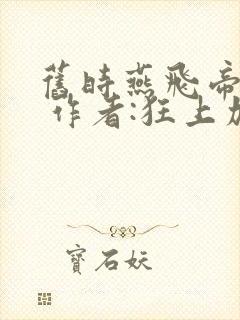 舊時燕飛帝
作者:狂上加
寶石妖